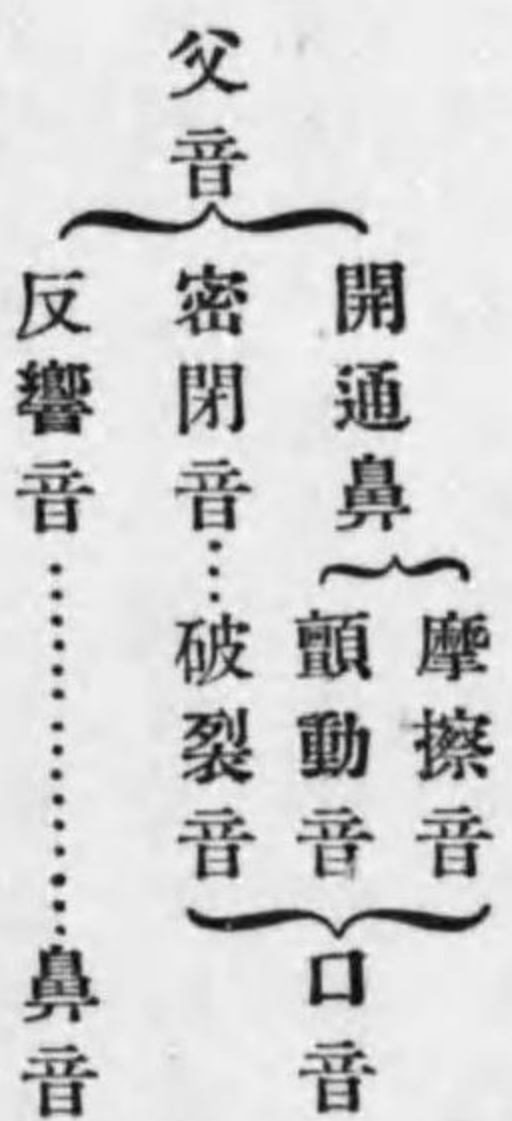 父音
開通鼻
摩擦音
顫動音
口音
密閉音……破裂音
反響音……………鼻音